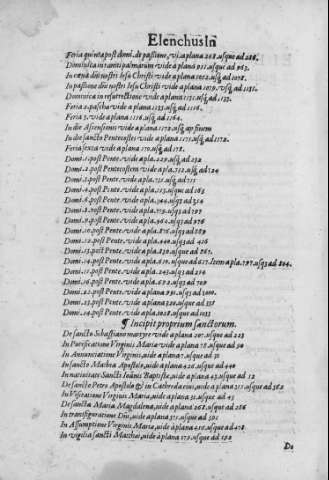 ElenchusIn
Feria quinta post domi. de passione, vi. a plana 208. usque ad 286.
Dominica in ramis palmarum vide a plana 911. usque ad 963.
In cœna dñi nostri Iesu Christi vide a plana 1002. usq̃ ad 1078.
In passione dñi nostri Iesu Christi vide a plana 1079. usq̃ ad 1131.
Dominica in resurrectione vide a plana 1131. usq̃ ad 1133.
Feria 2. pascha vide a plana 1133. usq̃ ad 1116.
Feria 3. vide a plana 1116. usq̃ ad 1164.
In die Ascensionis vide a plana 1172. usq̃
In die sancto Pentecostes vide a plana 1171. usq̃ ad 1172.
Feria sexta vide a plana 170. usq̃ ad 178.
Domi. 1. post Pente. vide a pla. 229. usq̃ ad 232
Domi. 2. post Pentecostem vide a pla. 712. usq̃ ad 724
Domi. 3. post Pente. vide a pla. 731. usq̃ ad 755
Domi. 4. post Pente. vide a pla. 153. usque ad 163
Domi. 5. post Pente. vide a pla. 344. usq3 ad 354
Domi. 8. post Pente. vide a pla. 779. usq3 ad 797
Domi. 9. post Pente. vide a pla. 964. usq3 ad 976
Domi. 10. post Pente. vide a pla. 876. usq3 ad 889
Domi. 11. post Pente. vide a pla. 449. usq3 ad 456
Domi. 13. post Pente. vide a pla. 839. usque ad 861.
Domi. 14. post Pente. vide a pla. 617. usque ad 627. Item a pla. 197. usq3 ad 204.
Domi. 15. post Pente. vide a pla. 243. usq3 ad 256
Domi. 16. post Pente. vide a pla. 692. usq3 ad 709
Domi. 22. post Pente. vide a plana 991. usq3 ad 2000.
Domi. 23. post Pente. vide a plana 320. usque ad 337
Domi. 24. post Pente. vide a plana 1028. usque ad 1033
¶ Incipit proprium sanctorum.
De sancto Sebastiano martyre vide a plana 207. usque ad 223
In Purificatione Virginis Maria vide a plana 78. usque ad 90
In Annunciatione Virginis, vide a plana 7. usque ad 31
In sancto Mathia Apostolo, vide a plana 426. usque ad 440
In nativitate Sancti Ioãnis Baptiste, vide a plana 43. usque ad 52
De sancto Petro Apostolo & in Cathedra eius, vide a plana 357. usque ad 382
In Visitatione Virginis Maria, vide a plana 31. usque ad 43
De sancta Maria Magdalena, vide a plana 268. usque ad 286
In transfiguratione Dñi, vide a plana 371. usque ad 395
In Assumptione Virginis Maria, vide a plana 410. usque ad 478
In vigilia sancti Matthei, vide a plana 173. usque ad 192
De